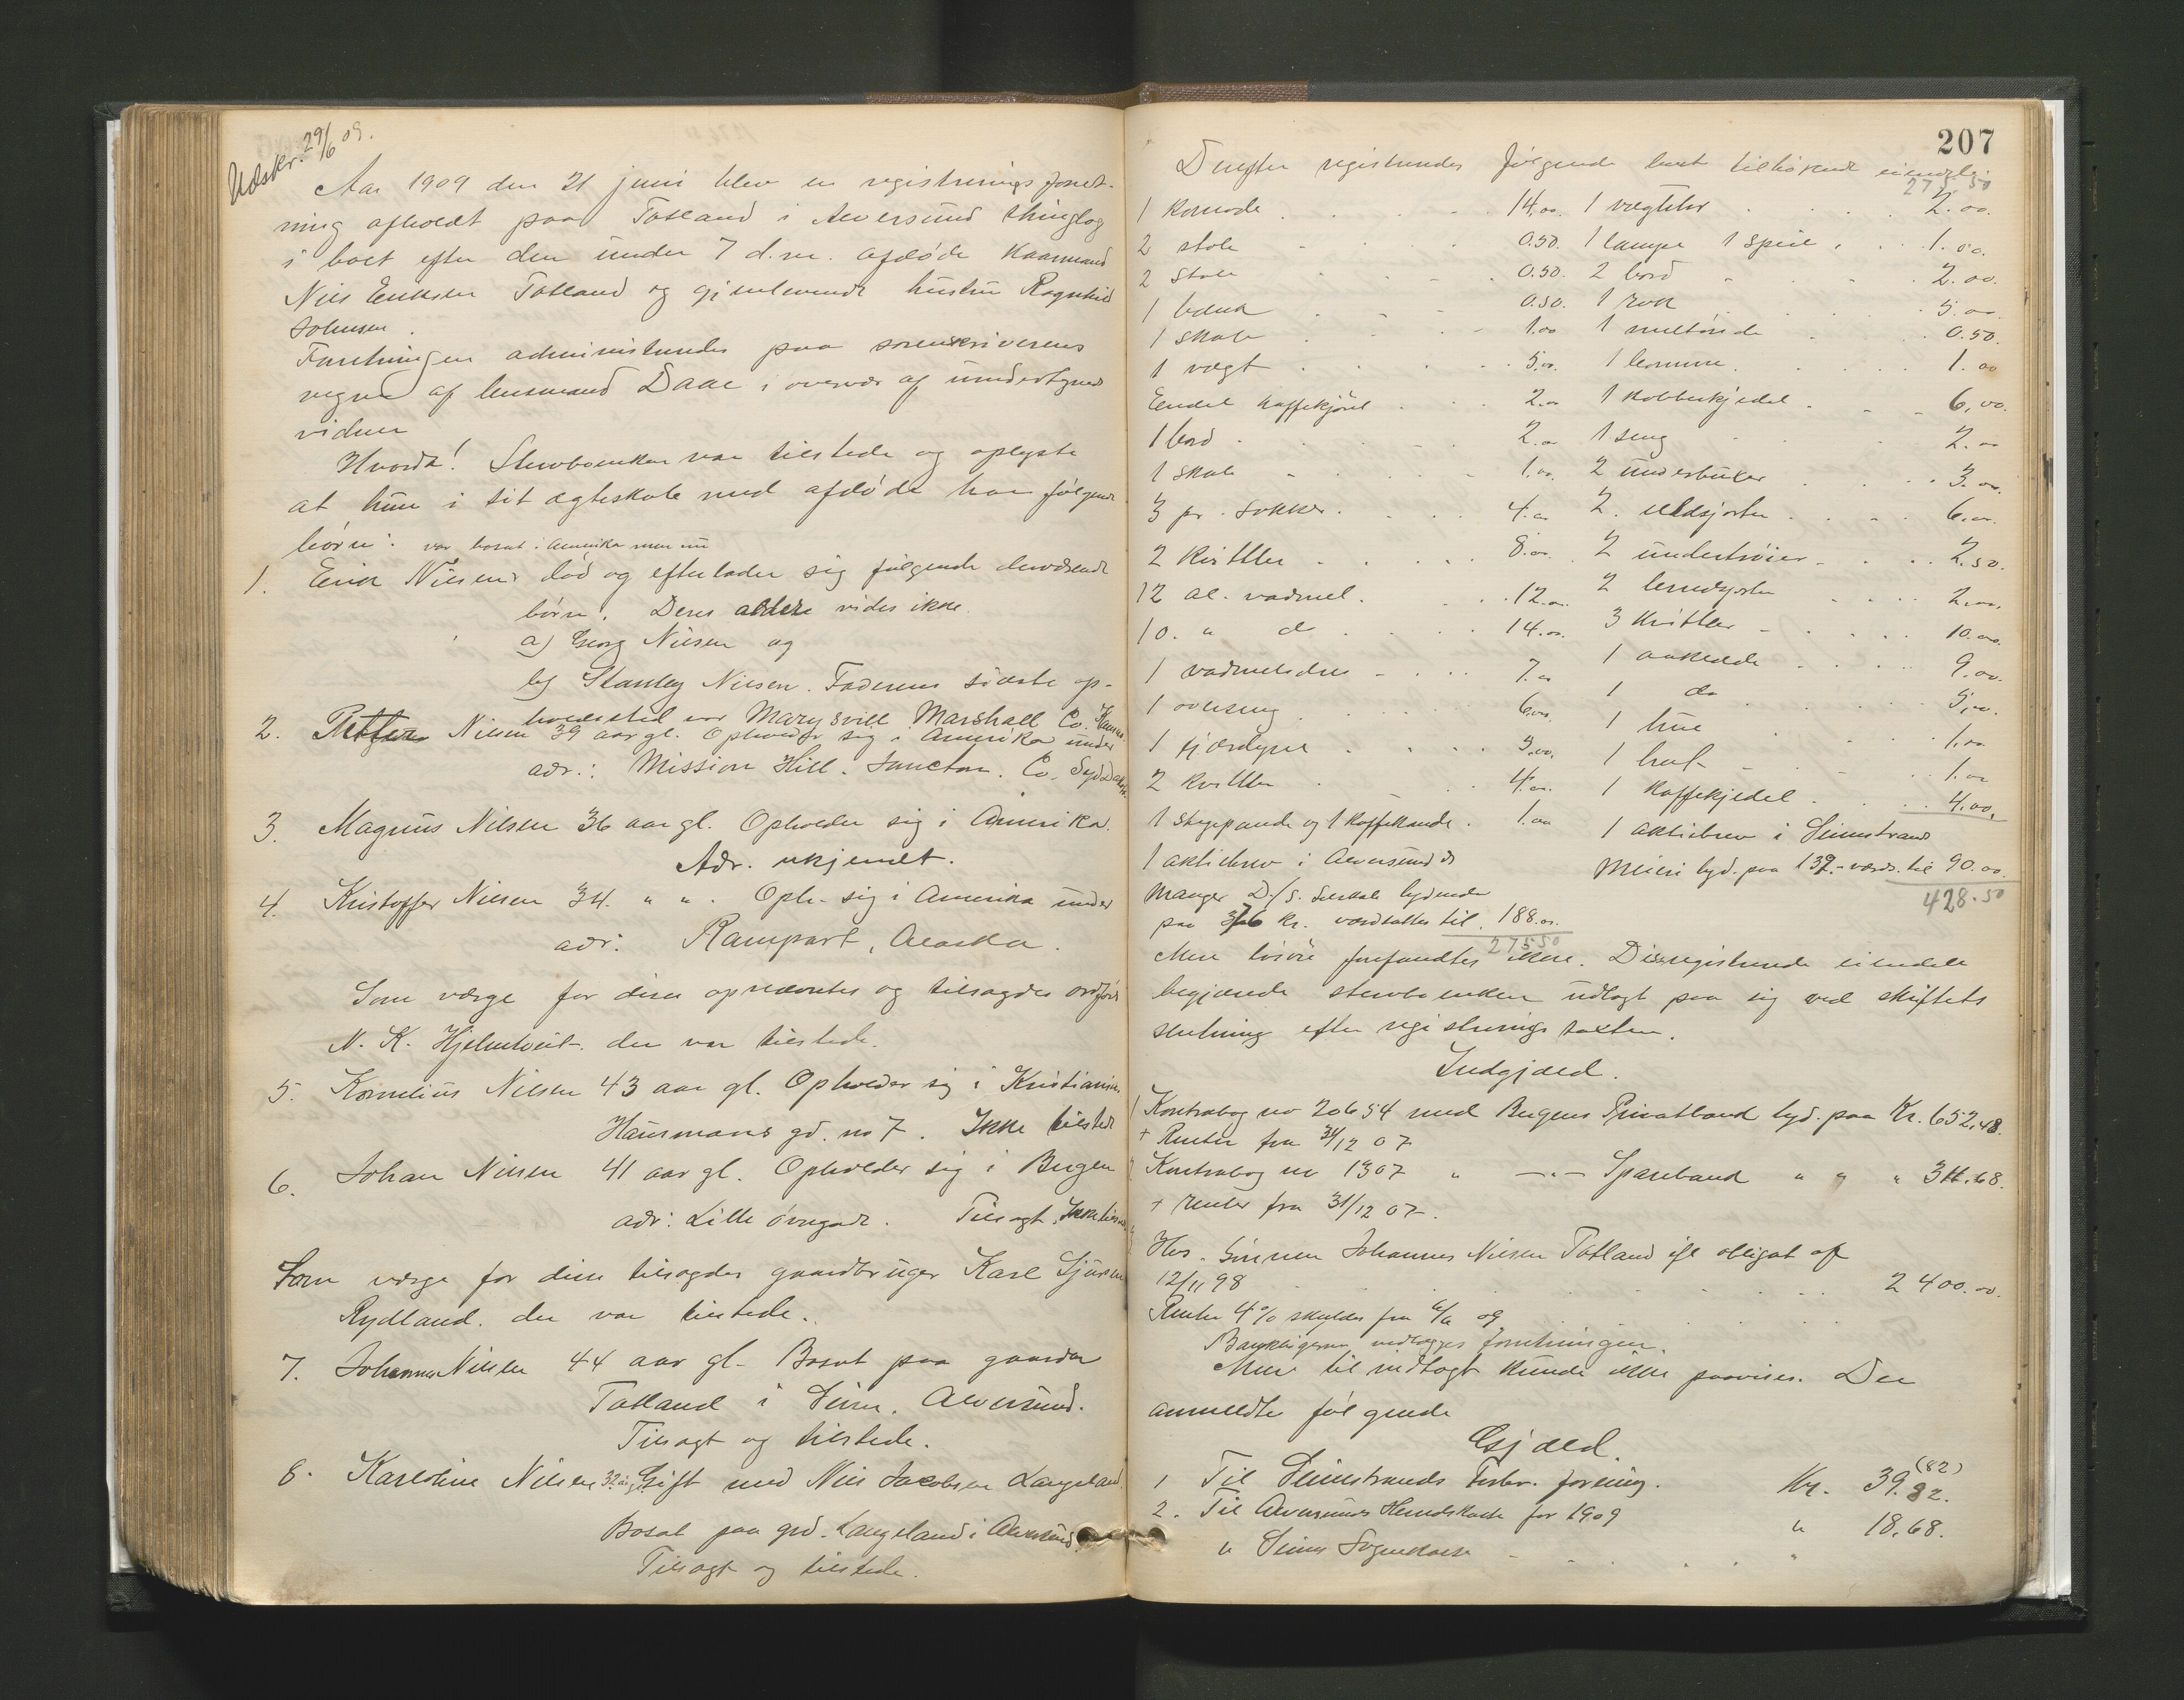 Udskr. 29/6 09.
Aar 1909 den 21 juni blev en registreringsforret-
ning afholdt paa Totland i Alversund thinglag
i boet efter den under 7 d.m. afdøde kaarmand
Nils Eriksen Totland og gjenlevende hustru Ragnhild
Johnsen.
Forretningen administreredes paa sorenskriverens
vegne af lensmand Daae i overvær af undertegnede
vidner
Hvorda! Stervboenken var tilstede og oplyste
at hun i sit ægteskab med afdøde har følgende
børn: var bosat i Amerika men nu
1. Erik Nilsen død og efterlader sig følgende derværende
børn. Deres aldere vides ikke.
a) Georg Nilsen og
b) Stanley Nilsen. Faderens sidste op-
holdssted var Marysvill Marshall Co. Kansas.
2. Petter Nilsen 39 aar gl. Opholder sig i Amerika under
adr.: Mission Hill. Jancton. Co. Syd Dakota.
3. Magnus Nilsen 36 aar gl. Opholder sig i Amerika.
Adr. ukjendt.
4. Kristoffer Nilsen 34. " ". Oph. sig i Amerika under
adr: Rampart, Alaska.
Som værge for disse opnævntes og tilsagdes ordfører
N. K. Hjelmtveit. der var tilstede.
5. Kornelius Nilsen 43 aar gl. Opholder sig i Kristiania
Hausmans gd. no 7. Ikke tilstede
6. Johan Nilsen 41 aar gl. Opholder sig i Bergen
adr: Lille øvregade. Tilsagt. Ikke tilstede
Som værge for disse tilsagdes gaardbruger Karl Sjursen
Rydland. der var tilstede.
7. Johannes Nilsen 44 aar gl. Bosat paa gaarden
Totland i Seim, Alversund.
Tilsagt og tilstede.
8. Karoline Nilsen 32 aar Gift med Nils Jacobsen Langeland.
Bosat paa grd. Langeland i Alversund.
Tilsagt og tilstede.
207
Derefter registreredes følgende boet tilhørende eiendele:
275 50
1 komode 14.00. 1 vægtuhr 2.00.
2 stole 0.50. 1 lampe 1 speil 1.00.
2 stole 0.50. 2 bord 2.00.
1 bænk 0.50. 1 rok 5.00.
1 skab 1.00 1 meltønde 0.50.
1 vægt 5.00. 1 lomme 1.00
Endel kaffekjørel 2.00 1 kobberkjedel 6.00.
1 bord 2.00 1 seng 2.00
1 skab 1.00. 2 underbuxer 3.00.
3 pr. sokker. 4.00 2. uldsjorter 6.00.
2 kvitler 8.00. 2 undertrøier 2.50.
12 al. vadmel. 12.00. 2 lerredsjorter 2.00.
10. " do 14.00. 3 kvitler 10.00.
1 vadmelsdres 7.00 1 ankelde 9.00.
1 overseng 6.00. 1 do 5.00.
1 fjærdyne 5.00. 1 hue 1.00.
2 kvitler 4.00. 1 hat 1.00
1 stegepande og 1 kaffekande. 1.00 1 kaffekjedel 4.00.
1 aktiebrev i Alversund & 1 aktiebrev i Seimstrand
Manger D/S. Selskab lydende Meieri lyd. paa 132.- værds. til 90.00.
paa 376 kr. værdsattes til 188.00. 428.50
275 50
Mere løsøre forefandtes ikke. De registrerede eiendele
begjærede stervboenken udlagt paa sig ved skiftets
slutning efter registreringstaxten.
Indgjæld.
1 Kontrabog no 20654 med Bergens Privatbank lyd. paa Kr. 652.48.
+ Renter fra 31/12 07
Kontrabog no 1307 " —"— Sparebank " " " 311.68.
+ renter fra 31/12 07.
Hos Sønnen Johannes Nilsen Totland ifl obligat af
12/11 98 2400.00.
Renter 4% skyldes fra
Bankbøgerne vedlægges forretningen.
Mere til indtægt kunde ikke paavises. Der
anmeldte følgende
Gjæld.
1 Til Seimstrands Forbr. forening. Kr. 39.82. (82)
2. Til Alversunds Herredskasse for 1909 " 18.68.
" Seims Sognekasse "